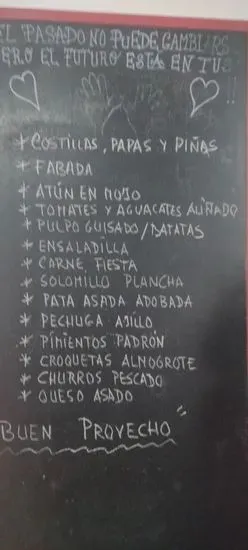 EL PASADO NO PUEDE CAMBIARSE
PERO EL FUTURO ESTÁ EN TUS
!!
* COSTILLAS, PAPAS Y PIÑAS
* FABADA
* ATÚN EN MOJO
* TOMATES Y AGUACATES ALIÑADO
* PULPO GUISADO/BATATAS
* ENSALADILLA
* CARNE FIESTA
* SOLOMILLO PLANCHA
* PATA ASADA ADOBADA
* PECHUGA AJILLO
* PIMIENTOS PADRÓN
* CROQUETAS ALMOGROTE
* CHURROS PESCADO
* QUESO ASADO
BUEN PROVECHO